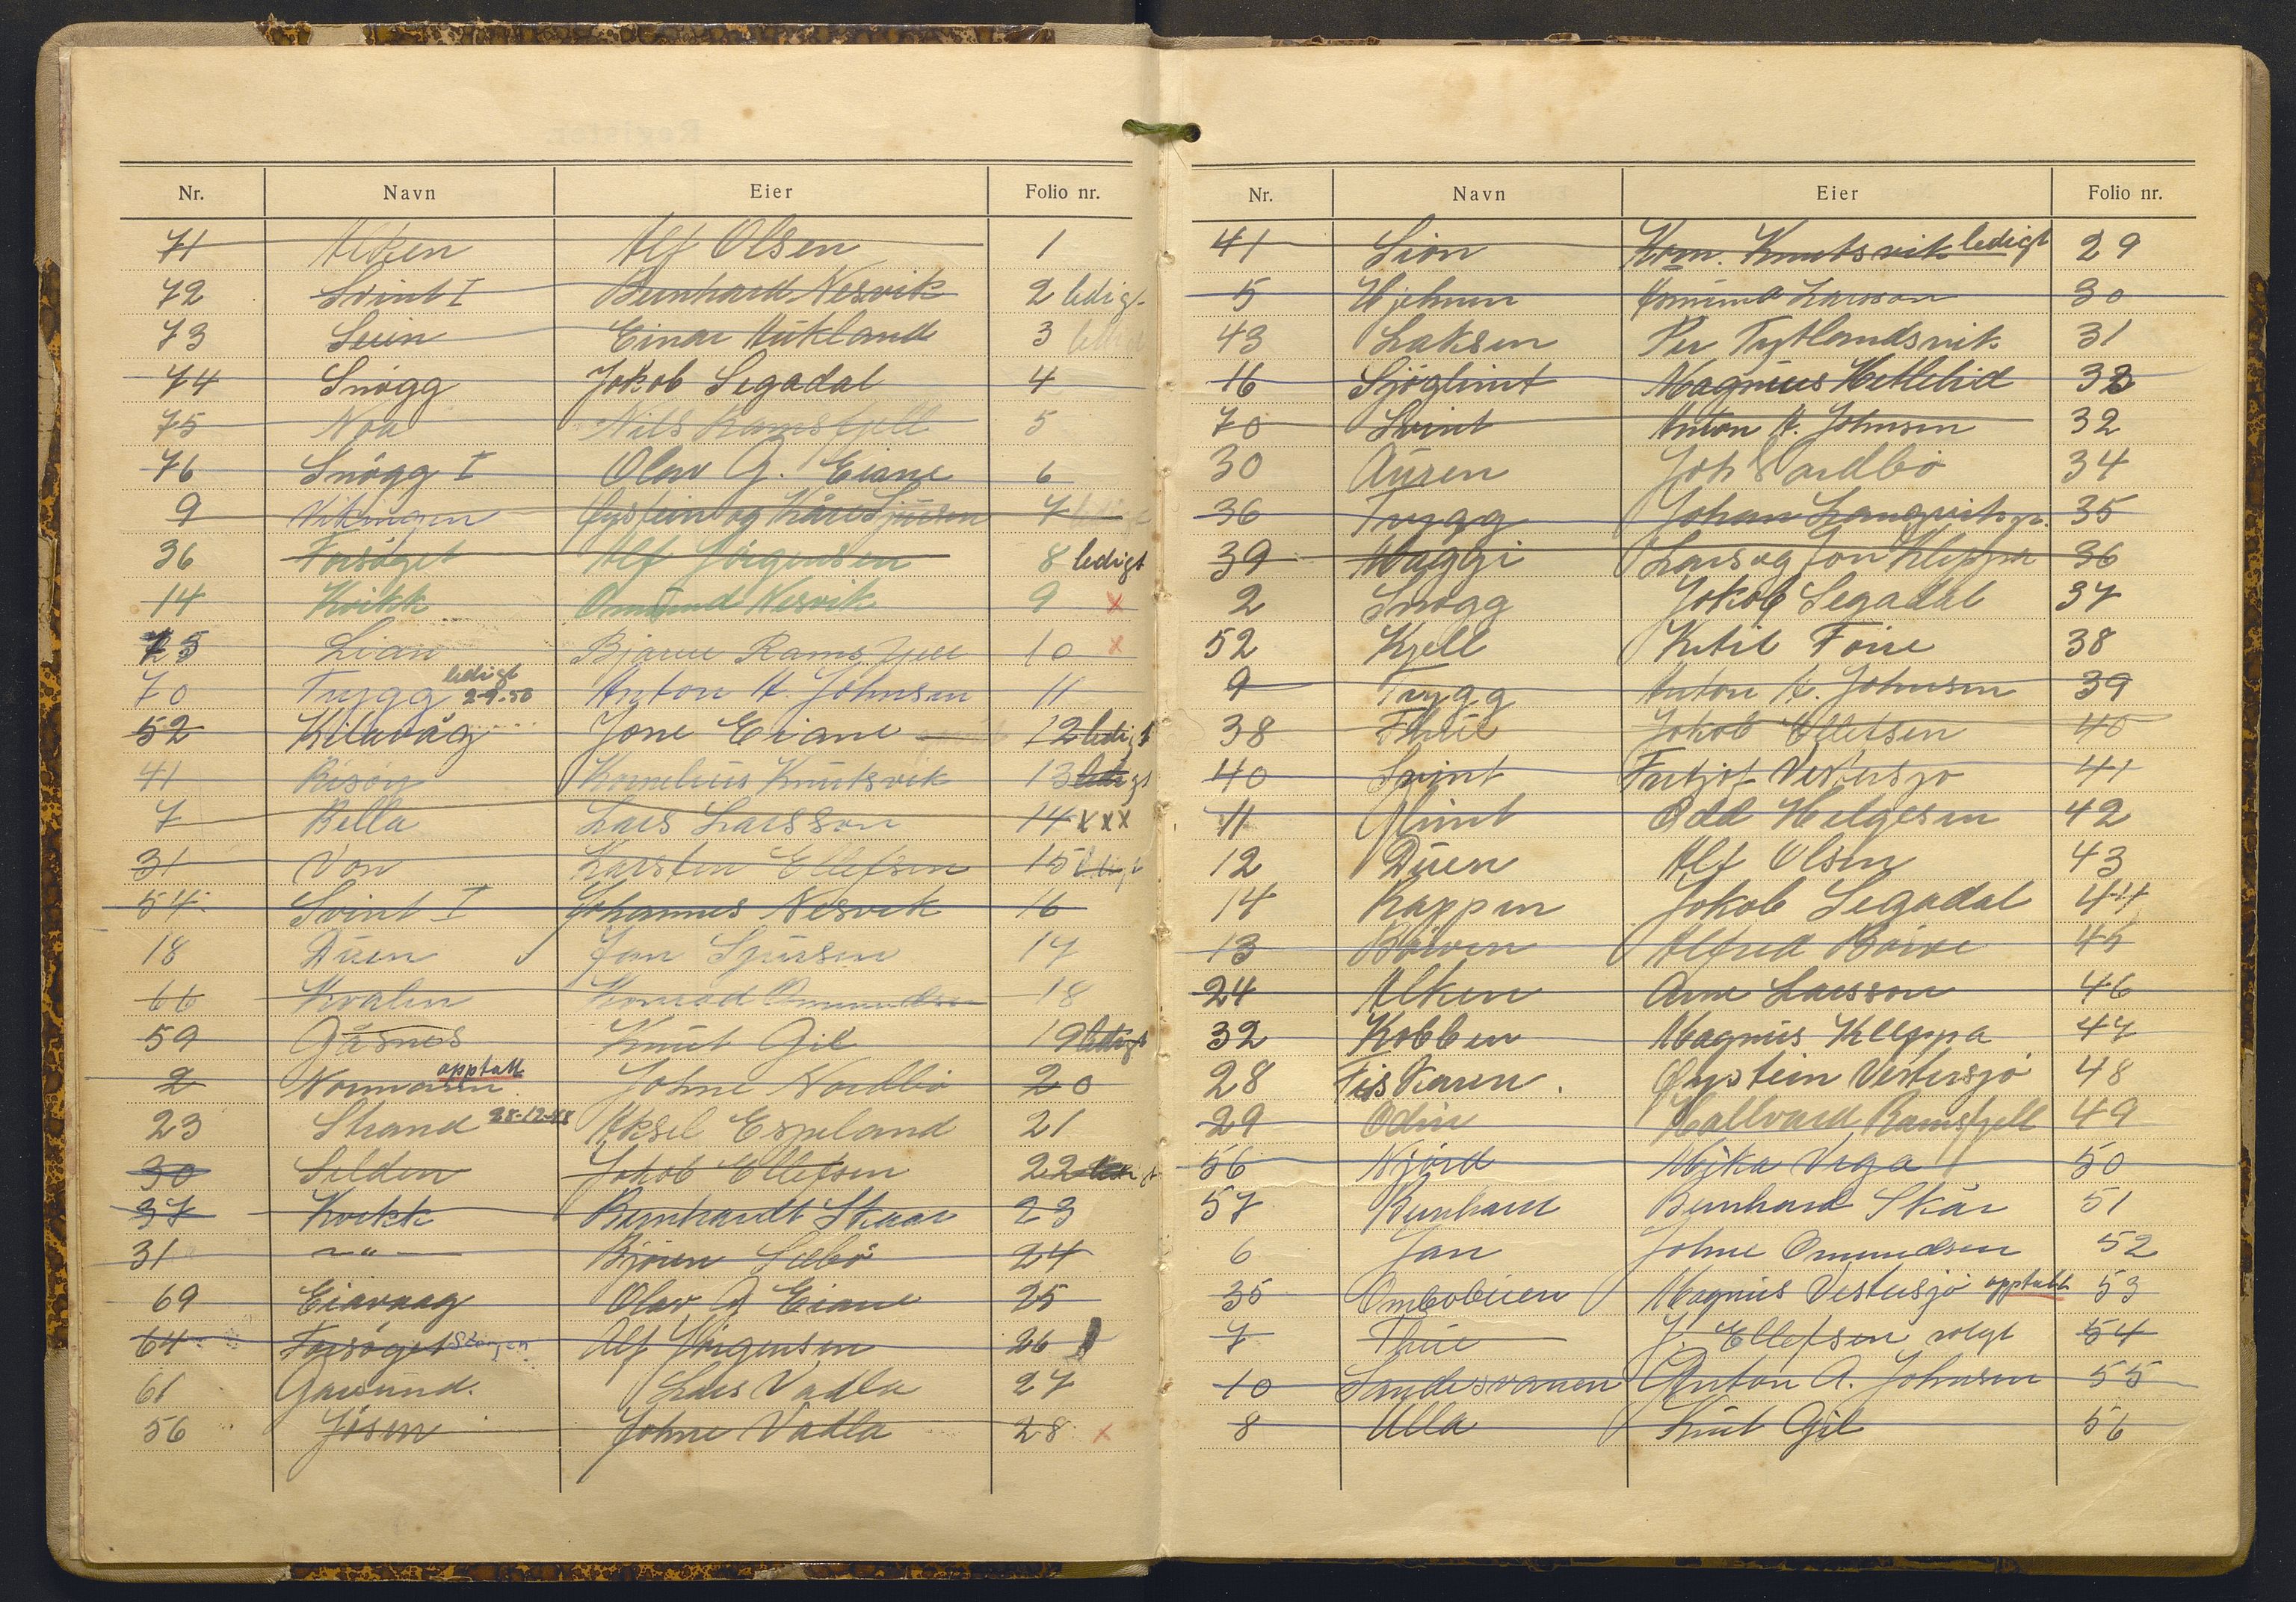 Nr. Navn Eier Folio nr.
71 Alken Alf Olsen 1
72 Svint I Bernhard Nesvik 2 ledigt
73 Einar Aukland 3
74 Snøgg Jakob Segadal 4
75 Noa Nils Ramsfjell 5
76 Snøgg I Olav G. Eiane 6
9 Vikingen Øystein og Kåre Sjursen 7
36 Forsøget Alf Jørgensen 8 ledigt
14 Kvikk Ommund Nesvik 9 x
Lian Bjarne Ramsfjell 10 x
70 Trygg ledigt 2-9-50 Anton A. Johnsen 11
52 Kilavåg Jone Eiane 12 ledigt
41 Risøy Kornelius Knutsvik 13 ledigt
7 Bella Lars Larsson 14 x x x
31 Von Karsten Ellefsen 15
54 Svint I Johannes Nesvik 16
18 Duen Jan Sjursen 17
66 Kvalen Konrad Ommundsen 18
59 Gåsnes Knut Gil 19 ledigt
2 opptatt Johne Nordbø 20
23 Strand 28-12-48 Aksel Espeland 21
30 Selden Jakob Ellefsen 22
37 Kvikk Bernhardt Skaar 23
31 — " — Bjørn Selbø 24
69 Eiavaag Olav G Eiane 25
64 Forsøget Alf Jørgensen 26
61 Lars Vadla 27
56 Jøsen Johne Vadla 28 x
Nr. Navn Eier Folio nr.
41 Lion Korn. Knutsvik ledigt 29
5 Hjelmen Larsson 30
43 Laksen Per Tytlandsvik 31
16 Sjøglimt Magnus Hetlelid
70 Svint Anton A. Johnsen 32
30 Auren Joh Nordbø 34
36 Trygg Johan 35
39 Maggi Lars og Jon Kleppa 36
2 Snøgg Jakob Segadal 37
52 Kjell Ketil Foire 38
9 Trygg Anton A. Johnsen 39
38 Thil Jakob Ellefsen 40
40 Svint Fritjof Vestersjø 41
11 Glimt Odd Helgesen 42
12 Duen Alf Olsen 43
14 Rappen Jakob Segadal 44
13 Bøiven Alfred Bøive 45
24 Alken Arne Larsson 46
32 Kobben Magnus Kleppa 47
28 Fiskaren. Øystein Vestersjø 48
29 Odin Hallvard Ramsfjell 49
56 Njord Mika Vega 50
57 Bernhard Bernhard Skår 51
6 Jan Johne Ommundsen 52
35 Ombobuen Magnus Vestersjø opptatt 53
7 J. Ellefsen solgt 54
10 Sandesvanen Anton A. Johnsen 55
8 Ulla Knut Gil 56